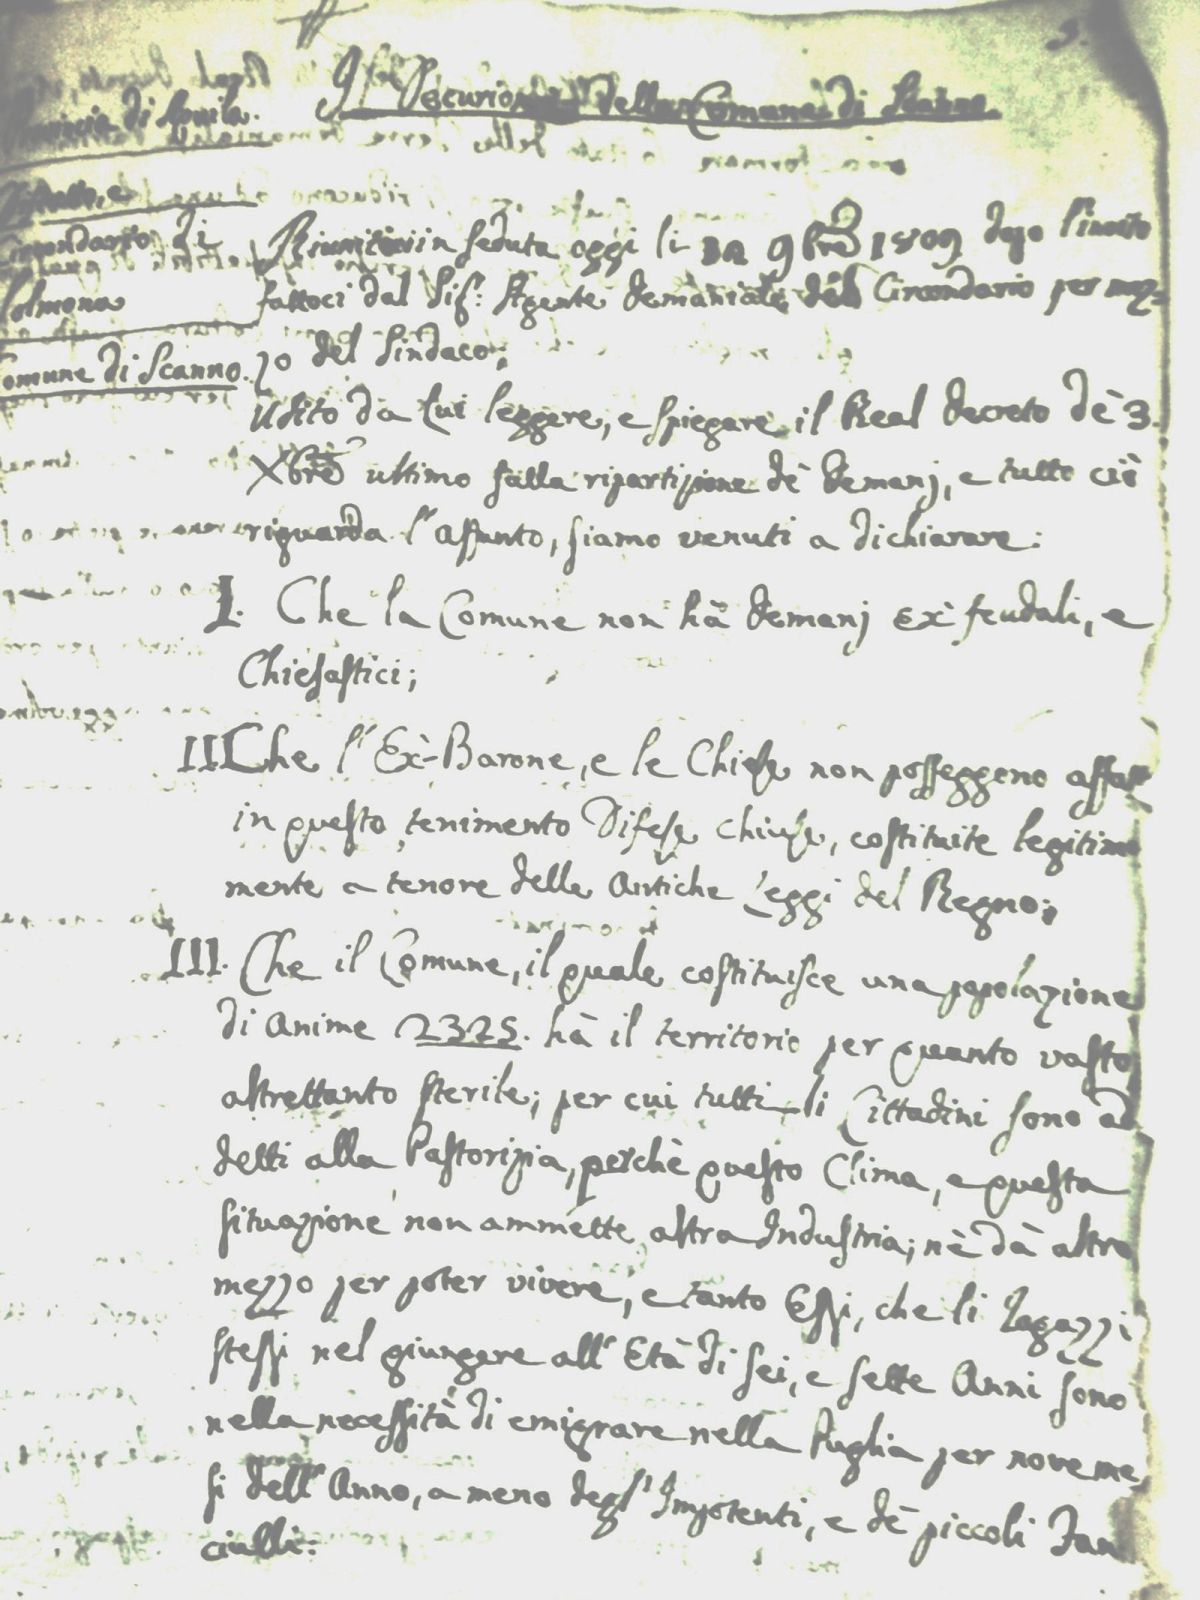 5.
Gl' Decurioni della Comune di Scanno
Provincia di Aquila.
Circondario di
Solmona
Comune di Scanno.
Riunitici in seduta oggi li 9bre 1809 dopo l'invito
fattoci dal Sig.r Agente demaniale del Circondario per mez-
zo del Sindaco;
Udito da Lui leggere, e spiegare il Real decreto de' 3.
Xbre ultimo sulla ripartizione de' demanj, e tutto ciò
riguarda l'assunto, siamo venuti a dichiarare:
I. Che la Comune non hà demanj ex feudali, e
Chiesastici;
II. Che l'Ex-Barone, e le Chiese non posseggono affat
in questo tenimento Difese chiuse, costituite legitima
mente a tenore delle Antiche Leggi del Regno;
III. Che il Comune, il quale costituisce una popolazione
di Anime 2325. hà il territorio per quanto vasto
altrettanto sterile; per cui tutti li Cittadini sono ad
detti alla Pastorizia, perchè questo Clima, e questa
situazione non ammette altra Industria; nè dà altro
mezzo per poter vivere, e tanto Essi, che li Ragazzi
stessi nel giungere all'Età di sei, e sette Anni sono
nella necessità di emigrare nella Puglia per nove me
si dell'Anno, a meno degl'Impotenti, e de' piccoli Fan
ciulli: